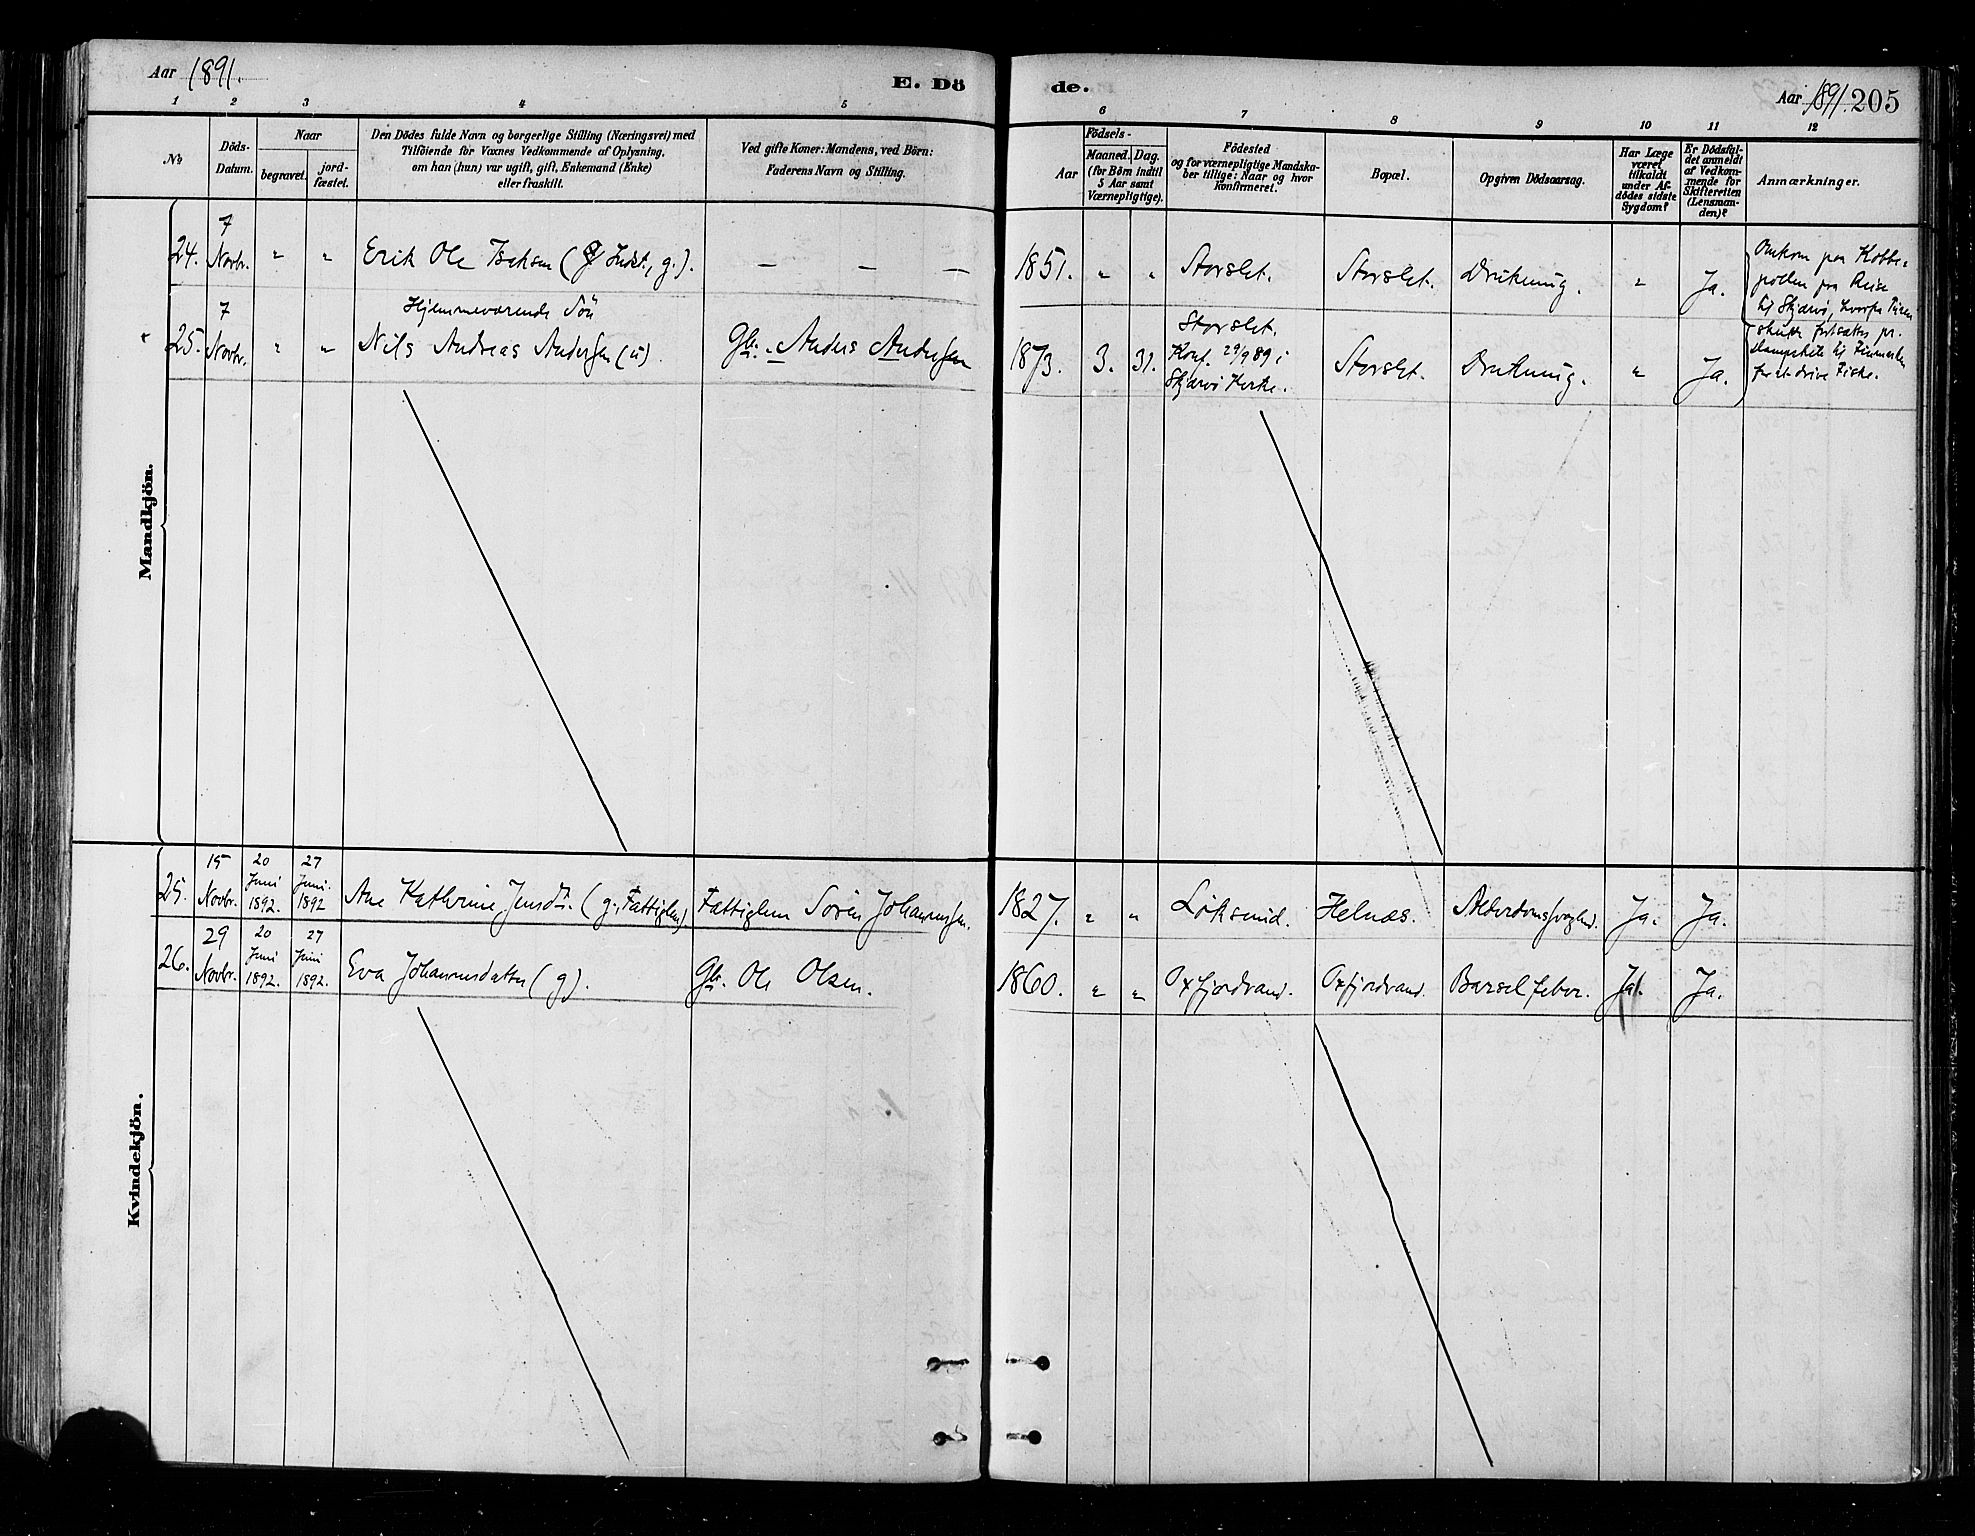 Aar 1891.
E. Dö
de.
Aar 1891. 205
1 2 3 4 5 6 7 8 9 10 11 12
No
Döds-
Datum.
Naar
begravet.
jord-
fæstet.
Den Dödes fulde Navn og borgerlige Stilling (Næringsvei) med
Tilföiende för Voxnes Vedkommende af Oplysning,
om han (hun) var ugift, gift, Enkemand (Enke)
eller fraskilt.
Ved gifte Koner: Mandens, ved Börn:
Faderens Navn og Stilling.
Födsels-
Aar
Maaned. Dag.
(for Börn indtil
5 Aar samt
Værnepligtige).
Födested
og for værnepligtige Mandska-
ber tillige: Naar og hvor
konfirmeret.
Bopæl.
Opgiven Dödsaarsag.
Har Læge
været
tilkaldt
under Af-
dödes sidste
Sygdom?
Er Dödsfal-
det anmeldt
af Vedkom-
mende for
Skifteretten
(Lensman-
den)?
Anmærkninger.
Mandkjön.
24. 7 Novbr. " " Erik Ole Isaksen ( Indst., g.). — — — 1851. " " Storslet. Storslet. Drukning. " Ja.
25. 7 Novbr. " " Hjemmeværende Sön
Nils Andreas Andersen (u). Gbr. Anders Andersen 1873. 3. 31. Storslet.
Konf. 29/9 89 i
Skjærvö Kirke. Storslet. Drukning. " Ja.
Omkom paa Kobbe-
pollen paa Reise
til Skjærvö, hvorfra
skulde fortsættes pr.
Dampskib til Finmarken
for at drive Fiske.
Kvindekjön.
25. 15 Novbr. 20 Juni 1892. 27 Juni 1892 Ane Kathrine Jensdtr. (g., Fattiglem) Fattiglem Sören Johannesen. 1827. " " Löksund. Helnæs. Alderdomssvaghed. Ja. Ja.
26. 29 Novbr. 20 Juni 1892. 27 Juni 1892. Eva Johannesdatter (g). Gbr. Ole Olsen. 1860. " " Oxfjordvand. Oxfjordvand. Barselfeber. Ja. Ja.